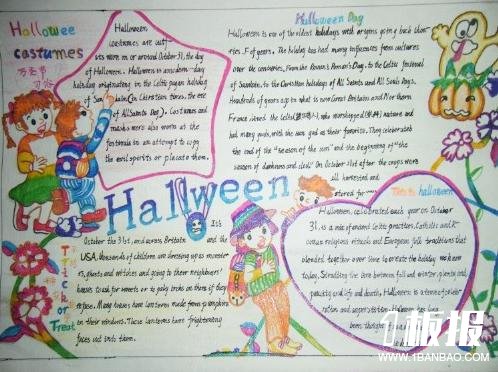 Hallowee
costumes
万圣节
Halloween
costumes are outf-
its worn on or around October 31, the day
of Halloween. Halloween is a modern-day
holiday originating in the Celtic pagan holiday
of Samhain (in Christian times, the eve
of All Saints Day). Costumes and
masks were also worn at the
festivals in an attempt to copy
the evil spirits or placate them.
Halloween Day
Halloween is one of the oldest holidays with origins going back thou-
sands of years. The holiday has had many influences from cultures
over the centuries. From the Roman's Pomona's Day, to the Celtic festival
of Samhain, to the Christian holidays of All Saints and All Souls Days.
Hundreds of years ago in what is now Great Britain and Northern
France lived the Celts, who worshipped nature and
had many gods, with the sun god as their favorite. They celebrated
the end of the "season of the sun" and the beginning of "the
season of darkness and cold". On October 31st after the crops were
all harvested and
stored for
Hallween
It's
October the 31st, and across Britain and the
USA, thousands of children are dressing up as monst-
ers, ghosts and witches and going to their neighbours'
houses to ask for sweets or to play tricks on them if they
refuse. Many houses have lanterns made from pumpkins
in their windows. These lanterns have frightening
faces cut into them.
Trick
or
Treat
This is halloween
Halloween, celebrated each year on October
31, is a mix of ancient Celtic practices, Catholic and R-
oman religious rituals and European folk traditions that
blended together over time to create the holiday we know
today. Straddling the line between fall and winter, plenty and
paucity and life and death, Halloween is a time of celeb-
ration and superstition. Halloween has
been thought of as a
板报
WWW.1BANBAO.COM